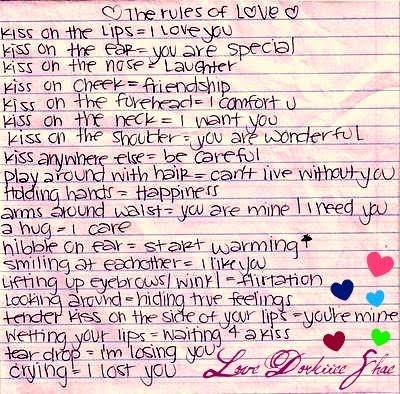 ♡ The rules of LOVE ♡
kiss on the lips = I love you
kiss on the ear = you are special
kiss on the nose = Laughter
kiss on cheek = friendship
kiss on the forehead = I comfort u
kiss on the neck = I want you
kiss on the shoulder = you are wonderful
kiss anywhere else = be careful
play around with hair = can't live without you
Holding hands = Happiness
arms around waist = you are mine / I need you
a hug = I care
nibble on ear = start warming *
smiling at eachother = I like you
Lifting up eyebrows / wink / = flirtation
Looking around = hiding true feelings
tender kiss on the side of your lips = you're mine
wetting your lips = waiting 4 a kiss
tear drop = i'm losing you
crying = I lost you
Love Shae